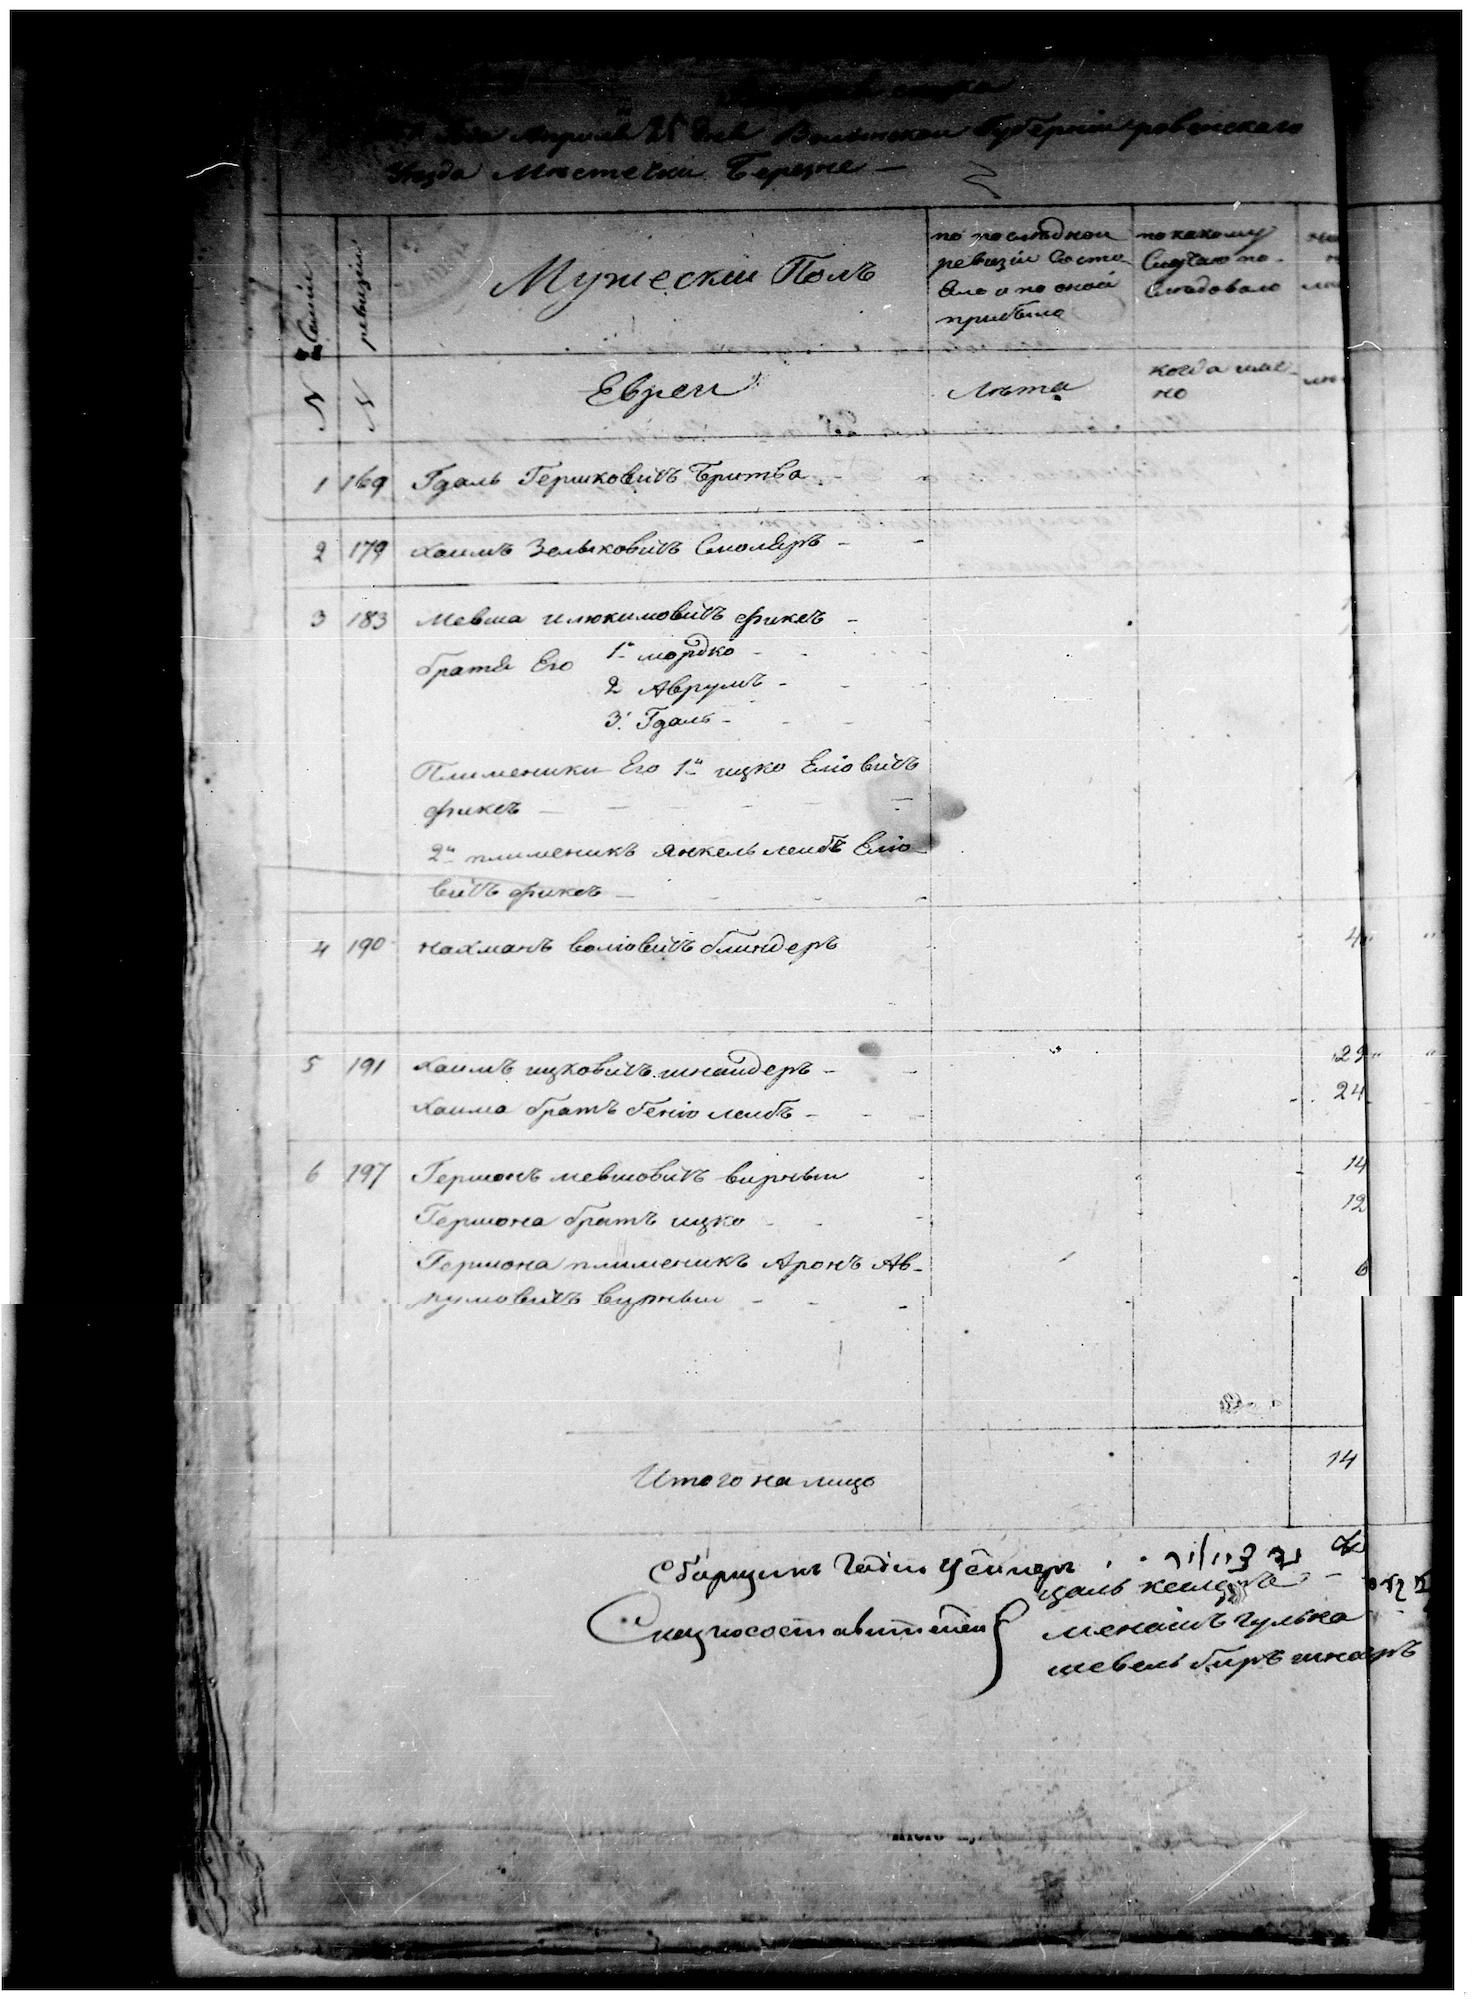 Апреля 25 дня Волынской Губерніи ровенского
Уезда Мѣстечки Березне —
N Семіи
N ревизіи
Мужескій Полъ
по последной ревизіи Состо яло и по оной прибыло
по какому Случаю по- Следовало
Евреи
Лѣта
когда име- но
1 169 Гдаль Гершковичъ Бритва
2 179 Хаимъ Зельковичъ Смоляръ
3 183 Мевша илюкимовичъ фиксъ
братя Его 1й мордко
2 Аврумъ
3. Гдаль
Плименики Его 1й ицко Еліовичъ
фиксъ
2й плименикъ Янкель леибъ Еліо
вичъ фиксъ
4 190 Нахманъ волповичъ блиндеръ 4
5 191 Хаимъ ицковичъ шнаидеръ 29
Хаима братъ беніо леибъ 24
6 197 Гершонъ мевшовичъ вирныи 14
Гершона братъ ицко 12
Гершона плименикъ Аронъ Ав- 6
румовичъ вирныи
Итого на лицо 14
Сборщикъ
цаль
Сказкосоставители
менашъ гулька
шевель биръ